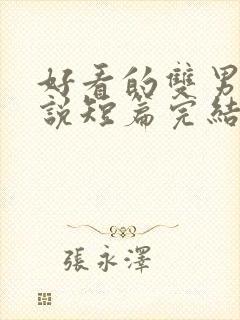 好看的雙男
說短篇完結
張永澤